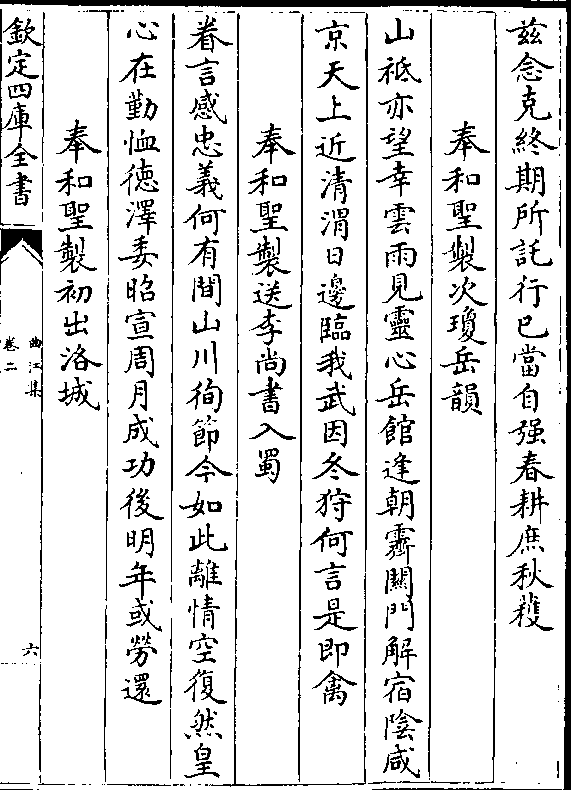 茲念克終期所託行已當自强春耕庶秋穫
奉和聖製次瓊岳韻
山祗亦望幸雲雨見靈心岳館逢朝霽關門解宿陰咸
京天上近清渭日邊臨我武因冬狩何言是即禽
奉和聖製送李尚書入蜀
眷言感忠義何有間山川徇節今如此離情空復然皇
心在勤恤徳澤委昭宣周月成功後明年或勞還
奉和聖製初出洛城
欽定四庫全書
曲江集
卷二
六